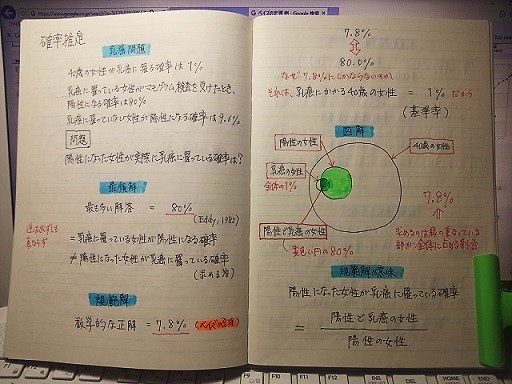 ベイズの定理 例 - Google 検索
確率推定
乳癌問題
40歳の女性が乳癌に罹る確率は1%
乳癌に罹っている女性がマンモグラム検査を受けたとき、
陽性になる確率は80%
乳癌に罹っていない女性が陽性になる確率は9.6%
問題
陽性になった女性が実際に乳癌に罹っている確率は?
最頻解
最も多い解答 = 80%
(Eddy, 1982)
= 乳癌に罹っている女性が陽性になる確率
≠ 陽性になった女性が乳癌に罹っている確率
(求める答)
規範解
数学的な正解 = 7.8% (ベイズの定理)
7.8%
80.0%
なぜ7.8%にしかならないのか?
それは、乳癌にかかる40歳の女性 = 1% だから
(基準率)
図解
陽性の女性
40歳の女性
乳癌の女性
全体の1%
陽性で乳癌の女性
黄色い円の80%
7.8%
規範解の意味
陽性になった女性が乳癌に罹っている確率
= 陽性で乳癌の女性
陽性の女性
F9
F10
F11
F12
DEL
HOME
END